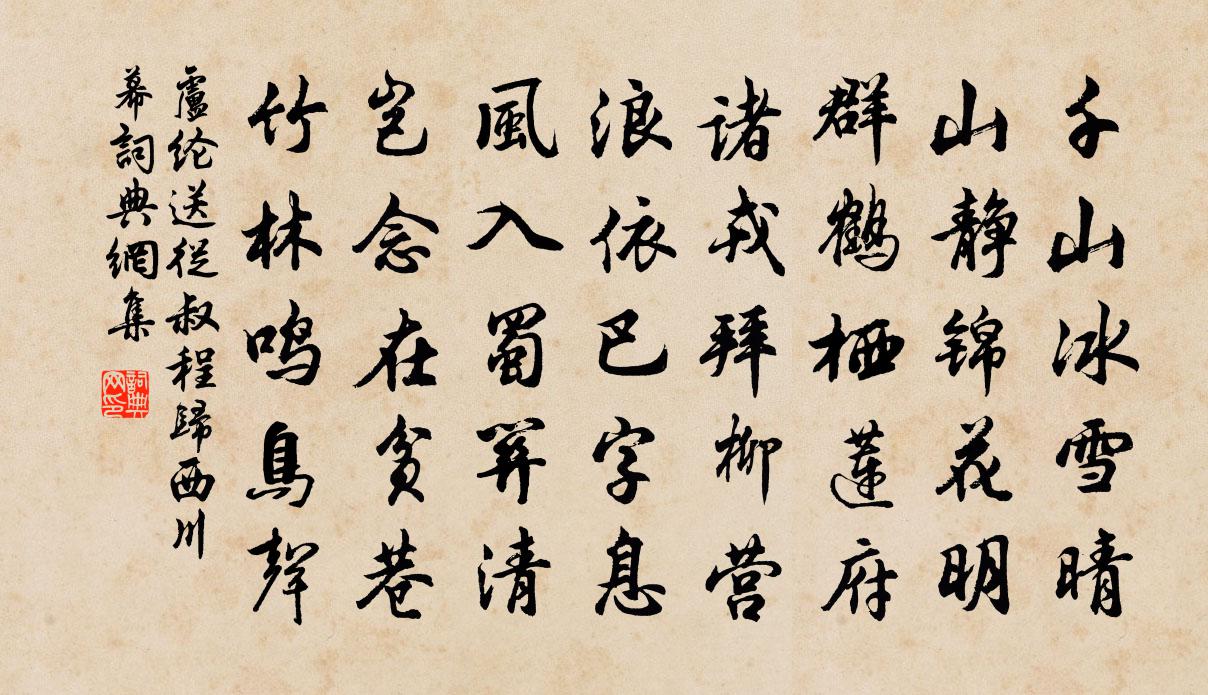 千山冰雪晴
山静锦花明
群鹤栖莲府
诸戎拜柳营
浪依巴字息
風入蜀關清
岂念在贫巷
竹林鸣鳥聲
盧纶送從叔程歸西川
幕詞典網集
詞典
网印